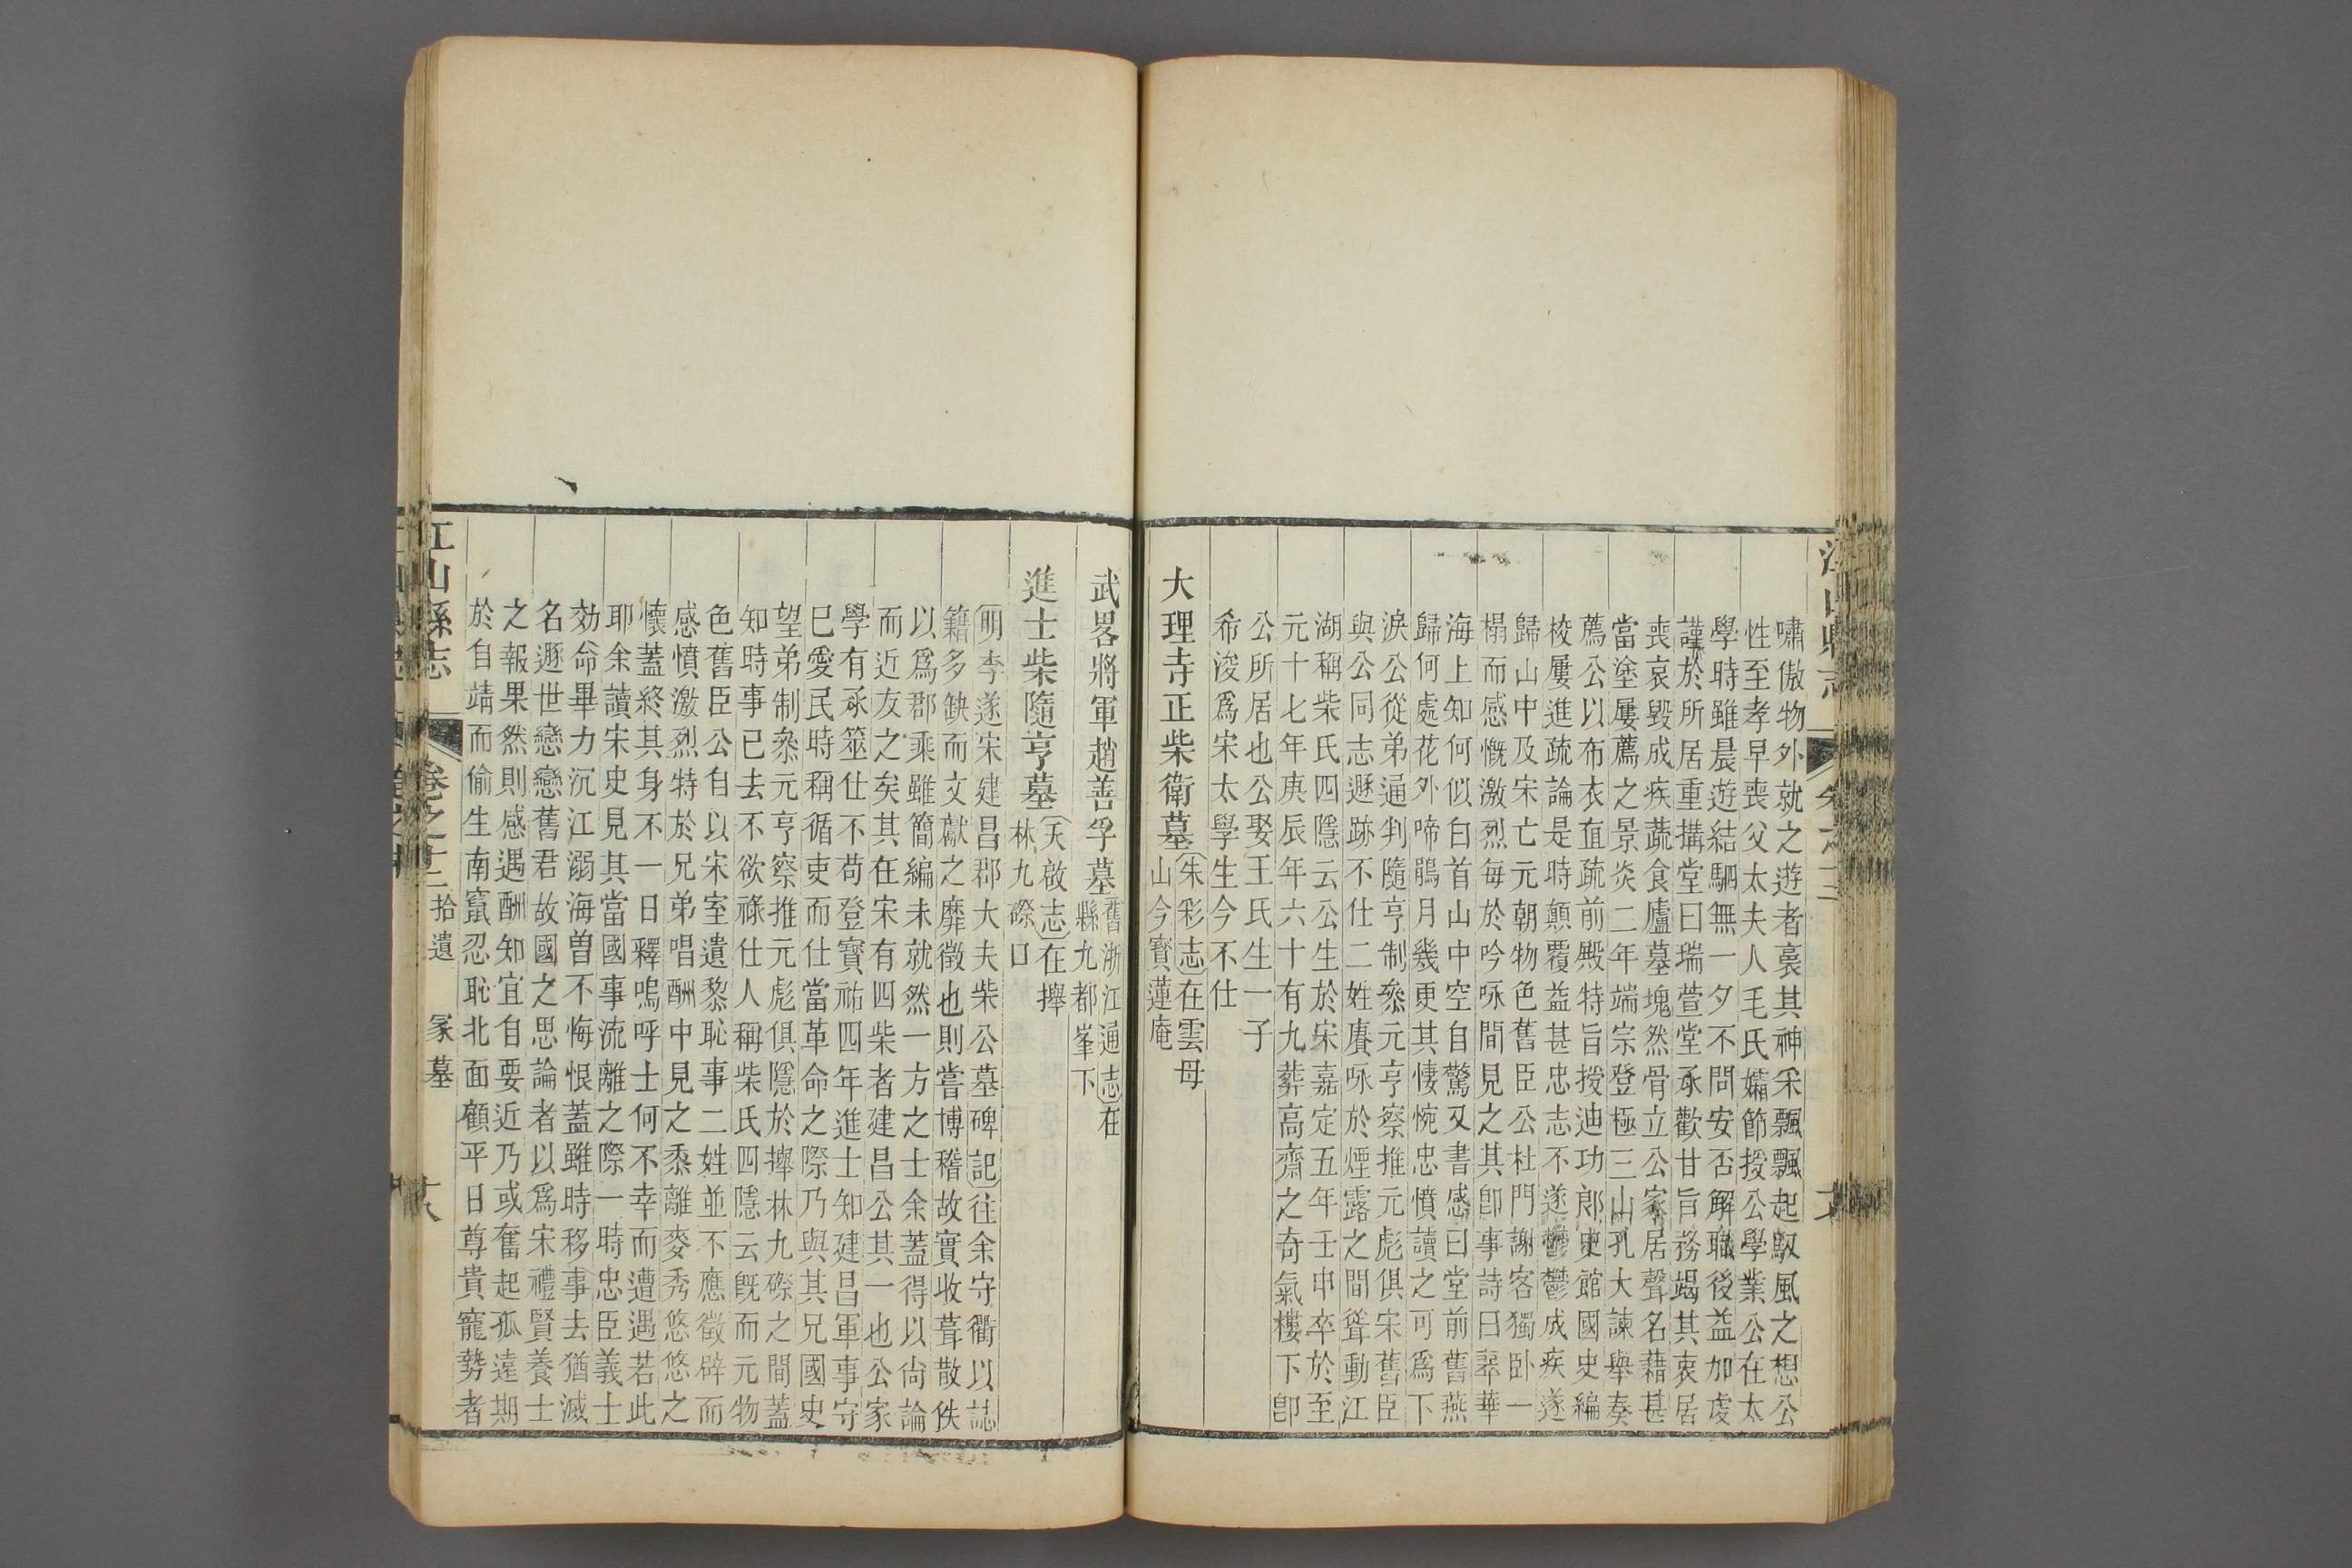 嘯傲物外就之遊者裛其神采飄飄起馭風之想公
性至孝早喪父太夫人毛氏孀節授公學業公在太
學時雖晨遊結駟無一夕不問安否解職後益加虔
謹於所居重搆堂曰瑞萱堂承歡甘旨務竭其衷居
喪哀毀成疾蔬食廬墓塊然骨立公家居聲名藉甚
當塗屢薦之景炎二年端宗登極三山孔大諫舉奏
薦公以布衣直疏前殿特旨授迪功郎史館國史編
校屢進疏論是時顛覆益甚忠志不遂鬱鬱成疾遂
歸山中及宋亡元朝物色舊臣公杜門謝客獨臥一
榻而感慨激烈每於吟咏間見之其卽事詩曰翠華
海上知何似白首山中空自驚又書感曰堂前舊燕
歸何處花外啼鵑月幾更其悽惋忠憤讀之可爲下
淚公從弟通判隨亨制叅元亨察推元彪俱宋舊臣
與公同志遯跡不仕二姓賡咏於煙露之間聳動江
湖稱柴氏四隱云公生於宋嘉定五年壬申卒於至
元十七年庚辰年六十有九葬高齋之奇氣樓下卽
公所居也公娶王氏生一子
希浚爲宋太學生今不仕
大理寺正柴衛墓
朱彩志在雲母
山今寶蓮庵
武畧將軍趙善孚墓
舊浙江通志在
縣九都峯下
進士柴隨亨墓
天啟志在擧
林九磜口
明李遂宋建昌郡大夫柴公墓碑記往余守衢以誌
籍多缺而文獻之靡徵也則嘗博稽故實收葺散佚
以爲郡乘雖簡編未就然一方之士余蓋得以尙論
而近友之矣其在宋有四柴者建昌公其一也公家
學有承筮仕不苟登寶祐四年進士知建昌軍事守
巳愛民時稱循吏而仕當革命之際乃與其兄國史
望弟制叅元亨察推元彪俱隱於擧林九磜之間蓋
知時事已去不欲祿仕人稱柴氏四隱云旣而元物
色舊臣公自以宋室遺黎恥事二姓並不應徵辟而
感憤激烈特於兄弟唱酬中見之黍離麥秀悠悠之
懷蓋終其身不一日釋嗚呼士何不幸而遭遇若此
耶余讀宋史見其當國事流離之際一時忠臣義士
効命畢力沉江溺海曾不悔恨蓋雖時移事去猶滅
名遯世戀戀舊君故國之思論者以爲宋禮賢養士
之報果然則感遇酬知宜自要近乃或奮起孤遠期
於自靖而偷生南竄忍恥北面顧平日尊貴寵勢者
江山縣志
卷之十二
拾遺
冢墓